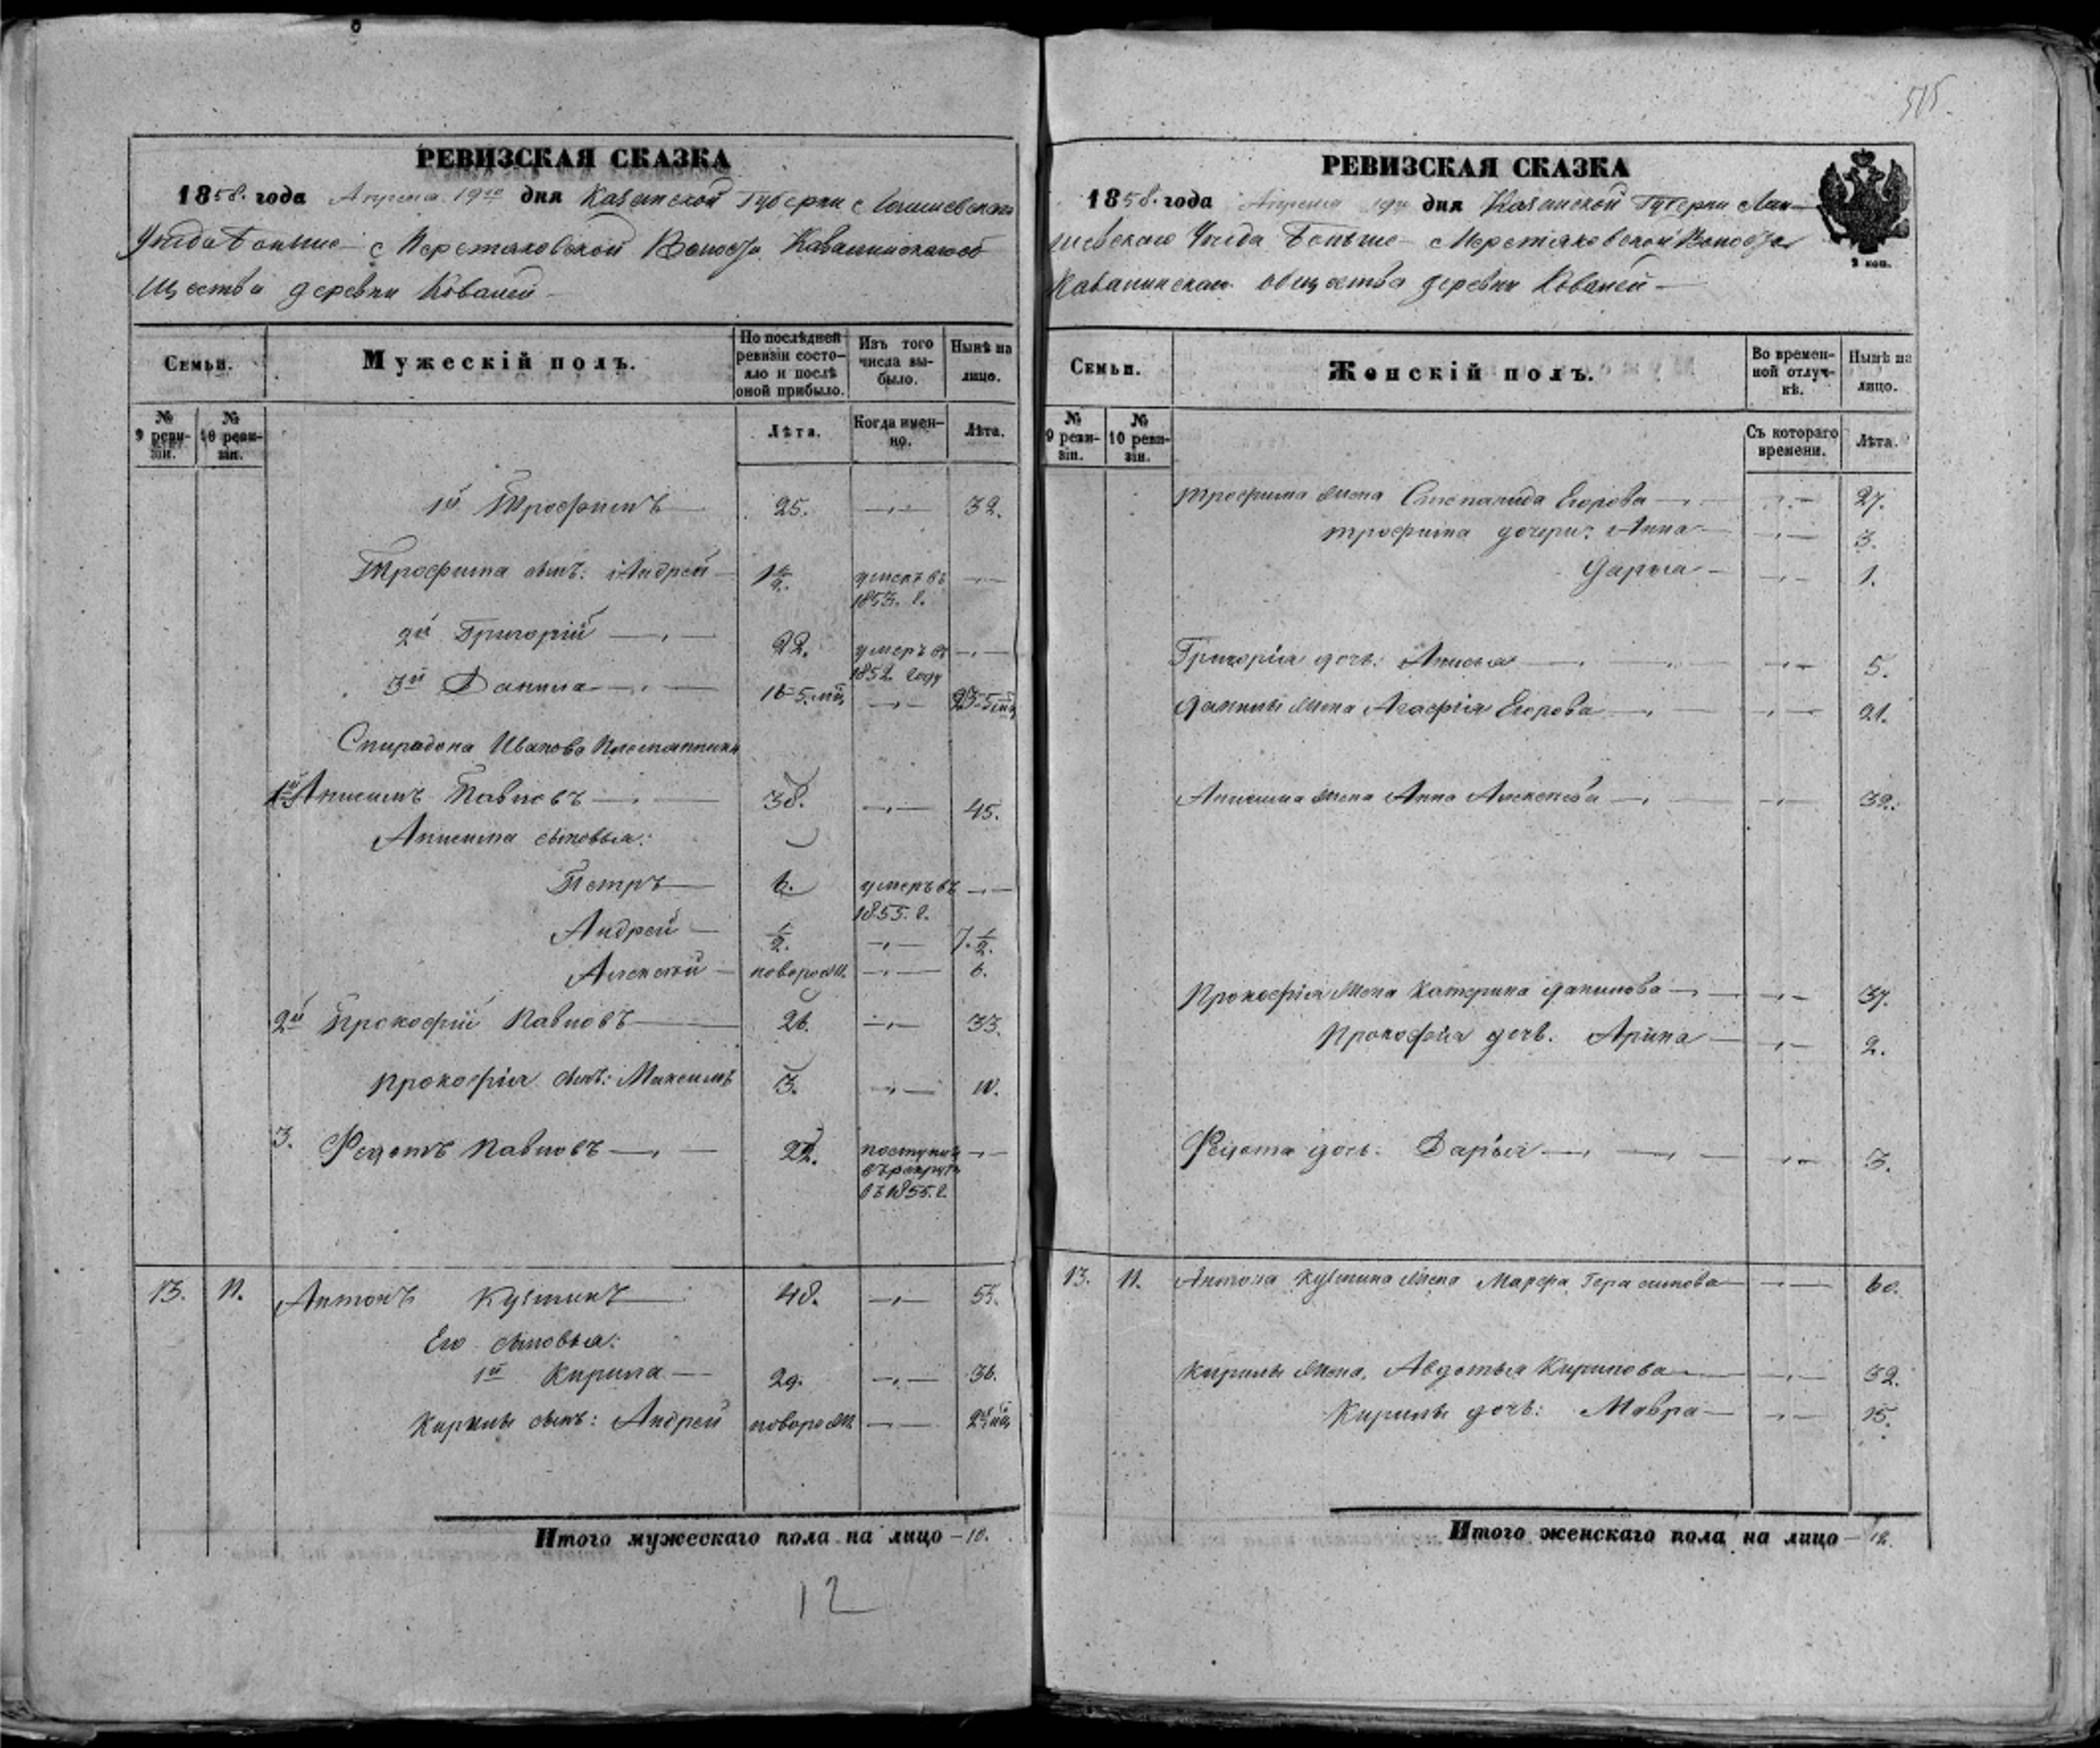 515
РЕВИЗСКАЯ СКАЗКА
1858. года Апреля 19го дня Казанской Губерніи Лаишевскаго
Уезда Больше-Меретяковской Волости Кавалинскаго об
щества деревни Ковалей
Семьи.
Мужескій полъ.
По послѣдней ревизіи состояло и послѣ оной прибыло.
Изъ того числа выбыло.
Нынѣ на лицо.
№ 9 ревизіи.
№ 10 ревизіи.
Лѣта.
Когда именно.
Лѣта.
1й Трофимъ 25. 32.
Трофима сынъ: Андрей 1 1/2. умеръ въ 1853. г.
2й Григорій 22. умеръ въ 1852 году
3й Данила 16-5.мц 23-5мц
Спирадона Иванова Племянники
1й Анисимъ Павловъ 38. 45.
Анисима сыновья:
Петръ 6. умеръ въ 1855. г.
Андрей 1/2. 7. 1/2.
Алексей новорож. 6.
2й Прокофій Павловъ 26. 33.
Прокофія сынъ: Максимъ 3. 10.
3. Федотъ Павловъ 22. поступилъ въ рекруты въ 1855. г.
13. 11. Антонъ Кузминъ 48. 55.
Его сыновья:
1й Кирила 29. 36.
Кирилы сынъ: Андрей новорож.
Итого мужескаго пола на лицо 10.
12
РЕВИЗСКАЯ СКАЗКА
1858. года Апреля 19го дня Казанской Губерніи Лаи
шевскаго Уезда Больше-Меретяковской Волости
Кавалинскаго общества деревни Ковалей
2 коп.
Семьи.
Женскій полъ.
Во временной отлучкѣ.
Нынѣ на лицо.
№ 9 ревизіи.
№ 10 ревизіи.
Съ котораго времени.
Лѣта.
Трофима жена Степанида Егорова 27.
Трофима дочери: Анна 3.
Дарья 1.
Григорія дочь: Анисья 5.
Данилы жена Агафія Егорова 21.
Анисима жена Анна Алексеева 39.
Прокофія жена Катерина Данилова 37.
Прокофія дочь. Арина 2.
Федота дочь: Дарья 3.
13. 11. Антона Кузмина жена Марфа Герасимова 60.
Кирилы жена, Авдотья Кирилова 32.
Кирилы дочь: Мавра 15.
Итого женскаго пола на лицо 12.